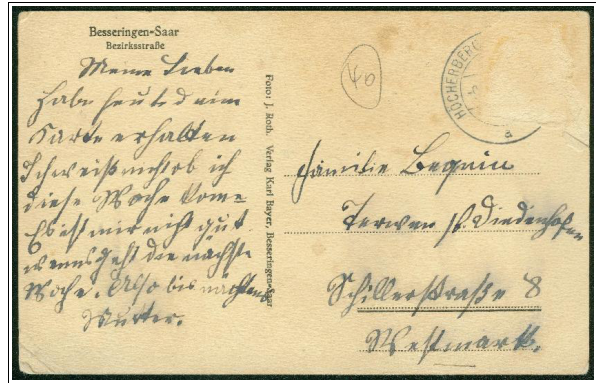 Besseringen-Saar
Bezirksstraße
Meine Lieben
Habe heute deine
Karte erhalten
Ich weiß nicht ob ich
diese Woche kome
Es ist mir nicht gut
wenns geht die nächste
Woche. Also bis nächstens
Mutter.
Foto: J. Roth. Verlag Karl Bayer, Besseringen-Saar
40
HÖCHERBERG
a
Familie Bequin
Terwen b/ Diedenhofen
Schillerstraße 8
Westmark.